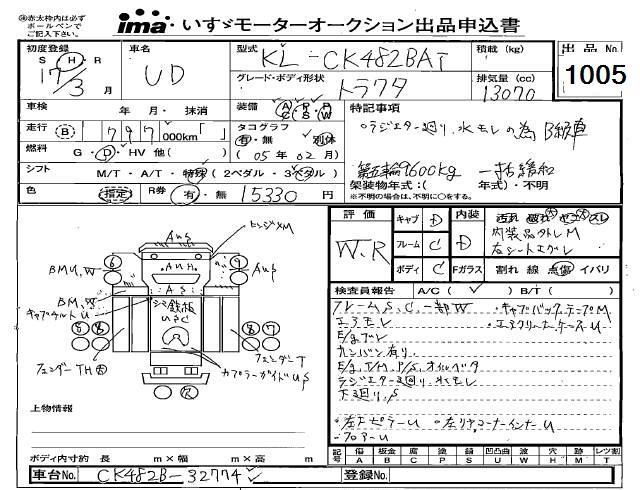 ㊟赤太枠内は必ず
ボールペンで
ご記入下さい。
ima・いすゞモーターオークション出品申込書
初度登録 車名 型式 積載 (kg) 出品No.
S H R
17/3 月 UD KL-CK482BAT 1005
グレード・ボディ形状 排気量 (cc)
トラクタ 13070
車検 年 月・抹消 装備 A P P C S W 特記事項
走行 B 1 797 000km「 」 タコグラフ 有・無 別体 ○ラジエター廻り、水モレの為 B級車
燃料 G・D・HV 他( ) (05年02月)
シフト M/T・A/T・特殊 (2ペダル・3ペダル) 第五輪9600kg 一括緩和
架装物年式:( 年式)・不明
色 指定 R券 有・無 15330円 ※不明の場合は、不明に○をする。
評価 キャブ D 内装 汚れ 破れ
W.R フレーム C D 内装品外レM
右シートエグレ
ボディ C Fガラス 割れ 線 点傷 イバリ
検査員報告 A/C ( ✓ ) B/T ( )
フレームS、C、一部W ・キャブバックステープM
エアモレ ・エアクリーナーケースU
E/gブレ
カンバン有り
E/g、T/M、P/S、オイルベタ
ラジエター廻り、水モレ
下廻り、S
・左Fピラーu ・左リアコーナーインナーu
・フロアーu
ヒンジメM
AuS
BMU、W
AuH
AuS
BM、W
AS
キャブチルトU
シミ鉄板
USC
6 9
8 8 8 7
フェンダーTH
フェンダーT
カプラーガイドUS
R
上物情報
ボディ内寸約 長 m×幅 m×高 m
記号 傷 板金 腐 塗 錆 凹凸曲 波 穴 跡 レツ割
A B C P S U W H M T
車台No. CK482B-32774 登録No.